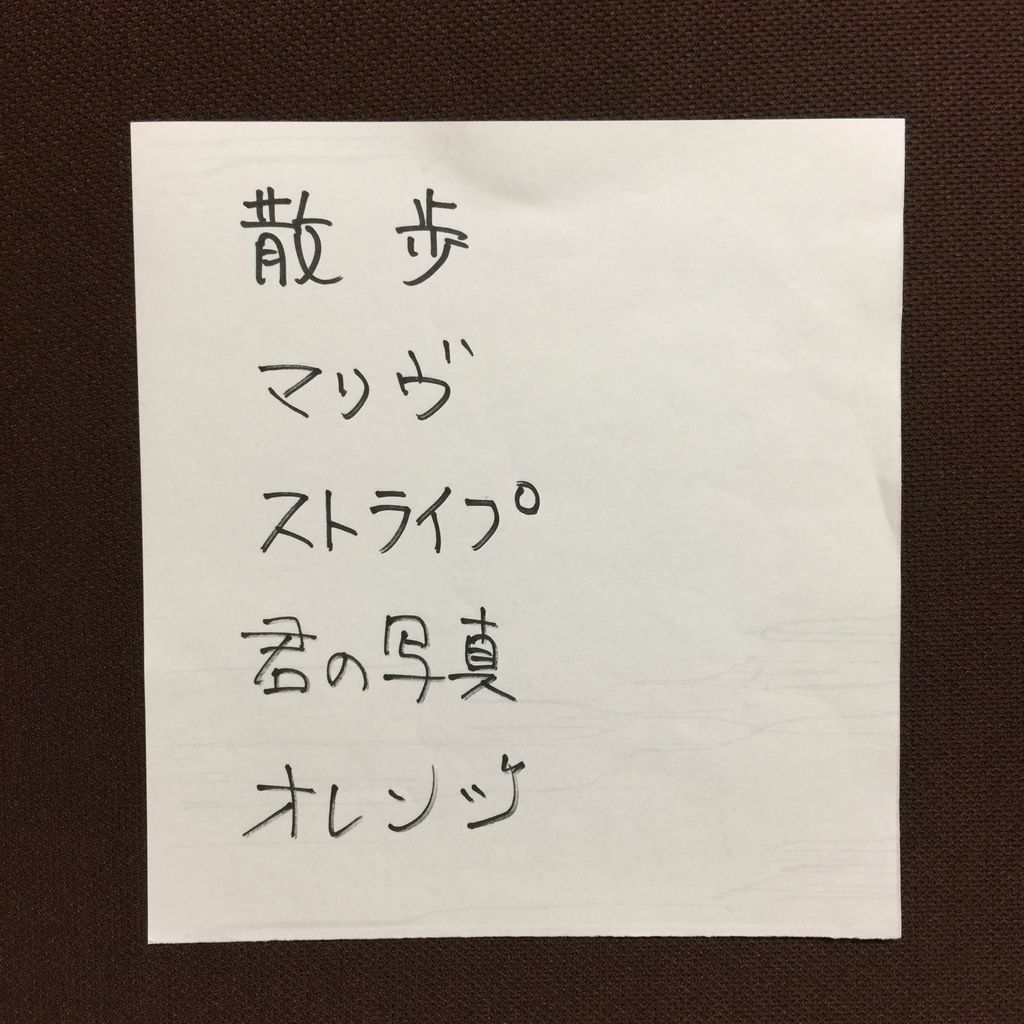 散歩
マリヴ
ストライプ
君の写真
オレンジ